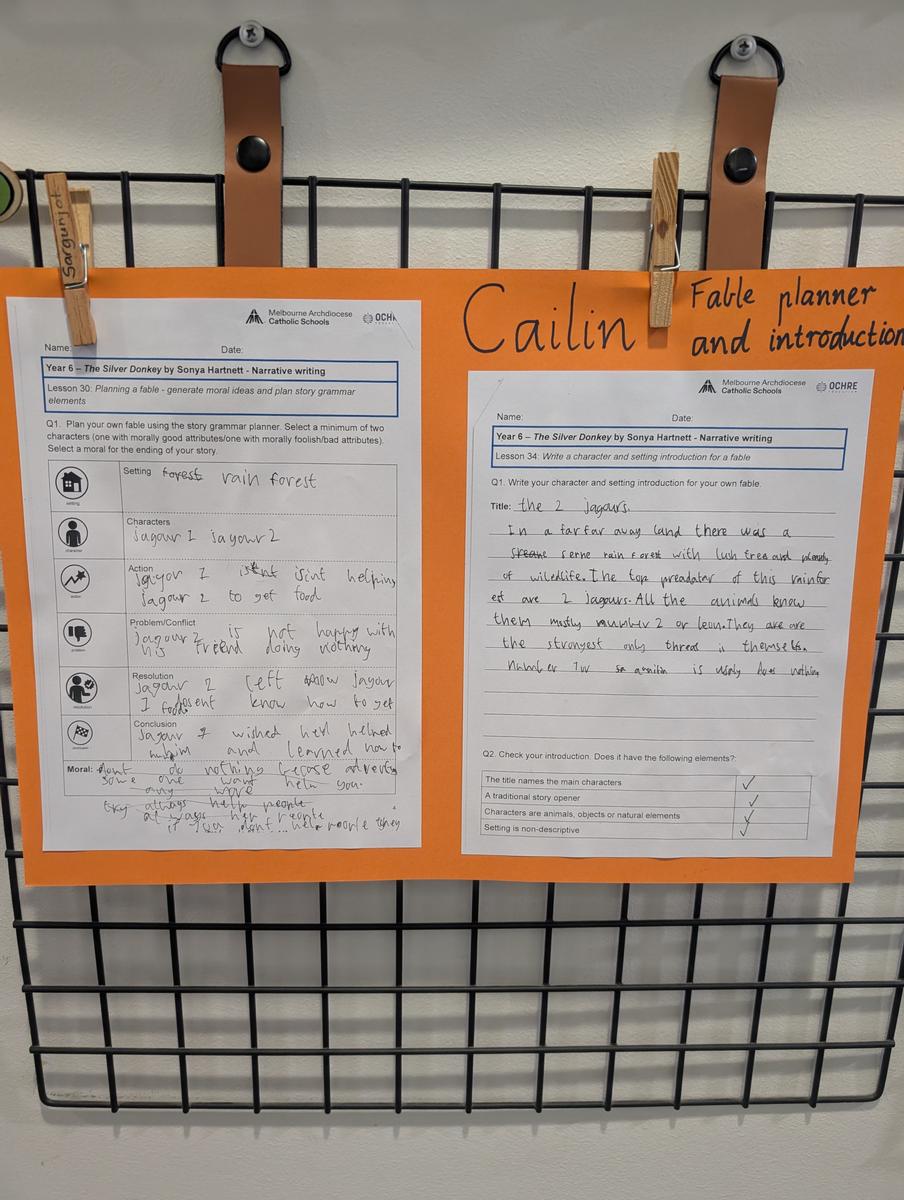 Sargunjot
Cailin
Fable planner
and introduction
Melbourne Archdiocese
Catholic Schools
OCHR
Name:
Date:
Year 6 – The Silver Donkey by Sonya Hartnett - Narrative writing
Lesson 30: Planning a fable - generate moral ideas and plan story grammar
elements
Q1. Plan your own fable using the story grammar planner. Select a minimum of two
characters (one with morally good attributes/one with morally foolish/bad attributes).
Select a moral for the ending of your story.
setting
Setting forest rain forest
character
Characters
jagour 1 jagour 2
action
Action
jagyor 1 isint helping
jagour 2 to get food
problem
Problem/Conflict
jagour 2 is not happy with
his freend doing nothing
resolution
Resolution
jagour 2 left now jagour
1 dosent know how to get
food
Conclusion
jagour 1 wished hed helped
him and learned how to
Moral: dont do nothing becose
some one want help you.
any more
try always help people
always help people
if you dont help people they
Melbourne Archdiocese
Catholic Schools
OCHRE
Name:
Date:
Year 6 – The Silver Donkey by Sonya Hartnett - Narrative writing
Lesson 34: Write a character and setting introduction for a fable
Q1. Write your character and setting introduction for your own fable.
Title: the 2 jagours.
In a far far away land there was a
serne rain forest with lush trees and
of wiledlife. The top preadator of this rainfor
est are 2 jagours. All the animals know
them mostly number 2 or leon. They are are
the strongest only thread is themselfs.
number 1 is usaly does nothing
Q2. Check your introduction. Does it have the following elements?:
The title names the main characters ✓
A traditional story opener ✓
Characters are animals, objects or natural elements ✓
Setting is non-descriptive ✓